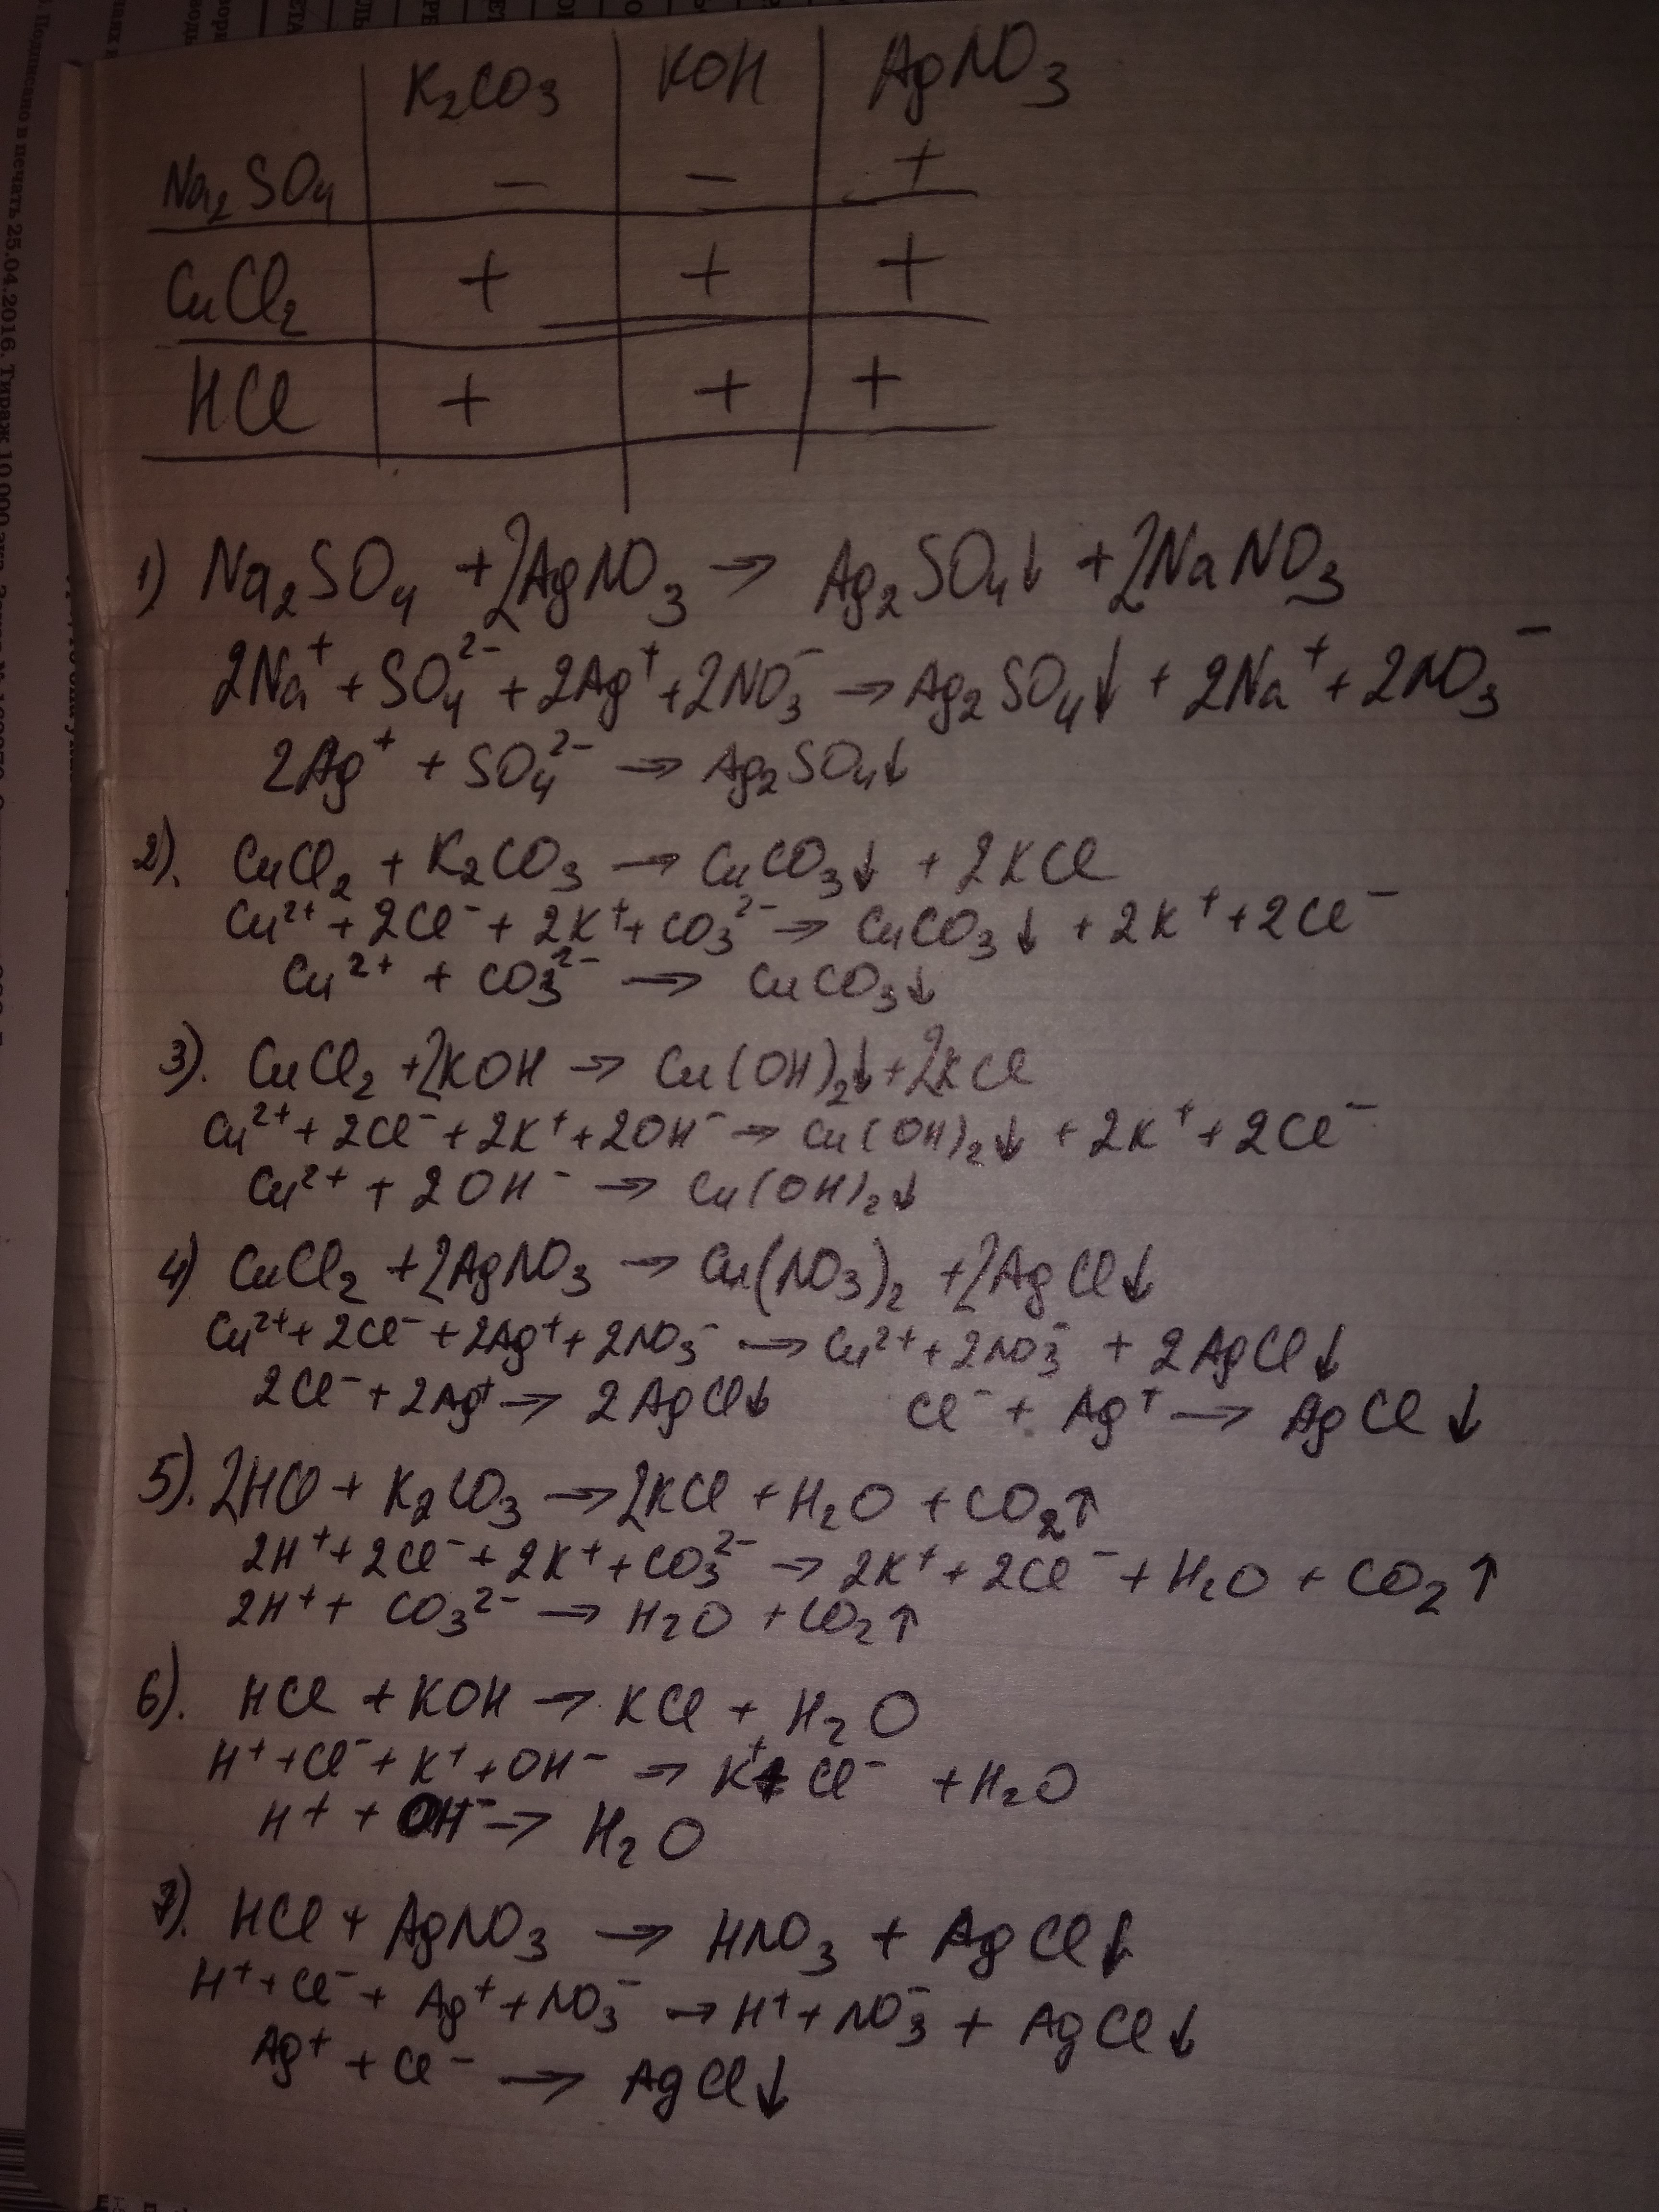 K₂CO₃ KOH AgNO₃
Na₂SO₄ − − +
CuCl₂ + + +
HCl + + +
1) Na₂SO₄ + 2AgNO₃ → Ag₂SO₄↓ + 2NaNO₃
2Na⁺ + SO₄²⁻ + 2Ag⁺ + 2NO₃⁻ → Ag₂SO₄↓ + 2Na⁺ + 2NO₃⁻
2Ag⁺ + SO₄²⁻ → Ag₂SO₄↓
2). CuCl₂ + K₂CO₃ → CuCO₃↓ + 2KCl
Cu²⁺ + 2Cl⁻ + 2K⁺ + CO₃²⁻ → CuCO₃↓ + 2K⁺ + 2Cl⁻
Cu²⁺ + CO₃²⁻ → CuCO₃↓
3). CuCl₂ + 2KOH → Cu(OH)₂↓ + 2KCl
Cu²⁺ + 2Cl⁻ + 2K⁺ + 2OH⁻ → Cu(OH)₂↓ + 2K⁺ + 2Cl⁻
Cu²⁺ + 2OH⁻ → Cu(OH)₂↓
4) CuCl₂ + 2AgNO₃ → Cu(NO₃)₂ + 2AgCl↓
Cu²⁺ + 2Cl⁻ + 2Ag⁺ + 2NO₃⁻ → Cu²⁺ + 2NO₃⁻ + 2AgCl↓
2Cl⁻ + 2Ag⁺ → 2AgCl↓ Cl⁻ + Ag⁺ → AgCl↓
5). 2HCl + K₂CO₃ → 2KCl + H₂O + CO₂↑
2H⁺ + 2Cl⁻ + 2K⁺ + CO₃²⁻ → 2K⁺ + 2Cl⁻ + H₂O + CO₂↑
2H⁺ + CO₃²⁻ → H₂O + CO₂↑
6). HCl + KOH → KCl + H₂O
H⁺ + Cl⁻ + K⁺ + OH⁻ → K⁺ + Cl⁻ + H₂O
H⁺ + OH⁻ → H₂O
7). HCl + AgNO₃ → HNO₃ + AgCl↓
H⁺ + Cl⁻ + Ag⁺ + NO₃⁻ → H⁺ + NO₃⁻ + AgCl↓
Ag⁺ + Cl⁻ → AgCl↓
Подписано в печать 25.04.2016. Тираж 10 000